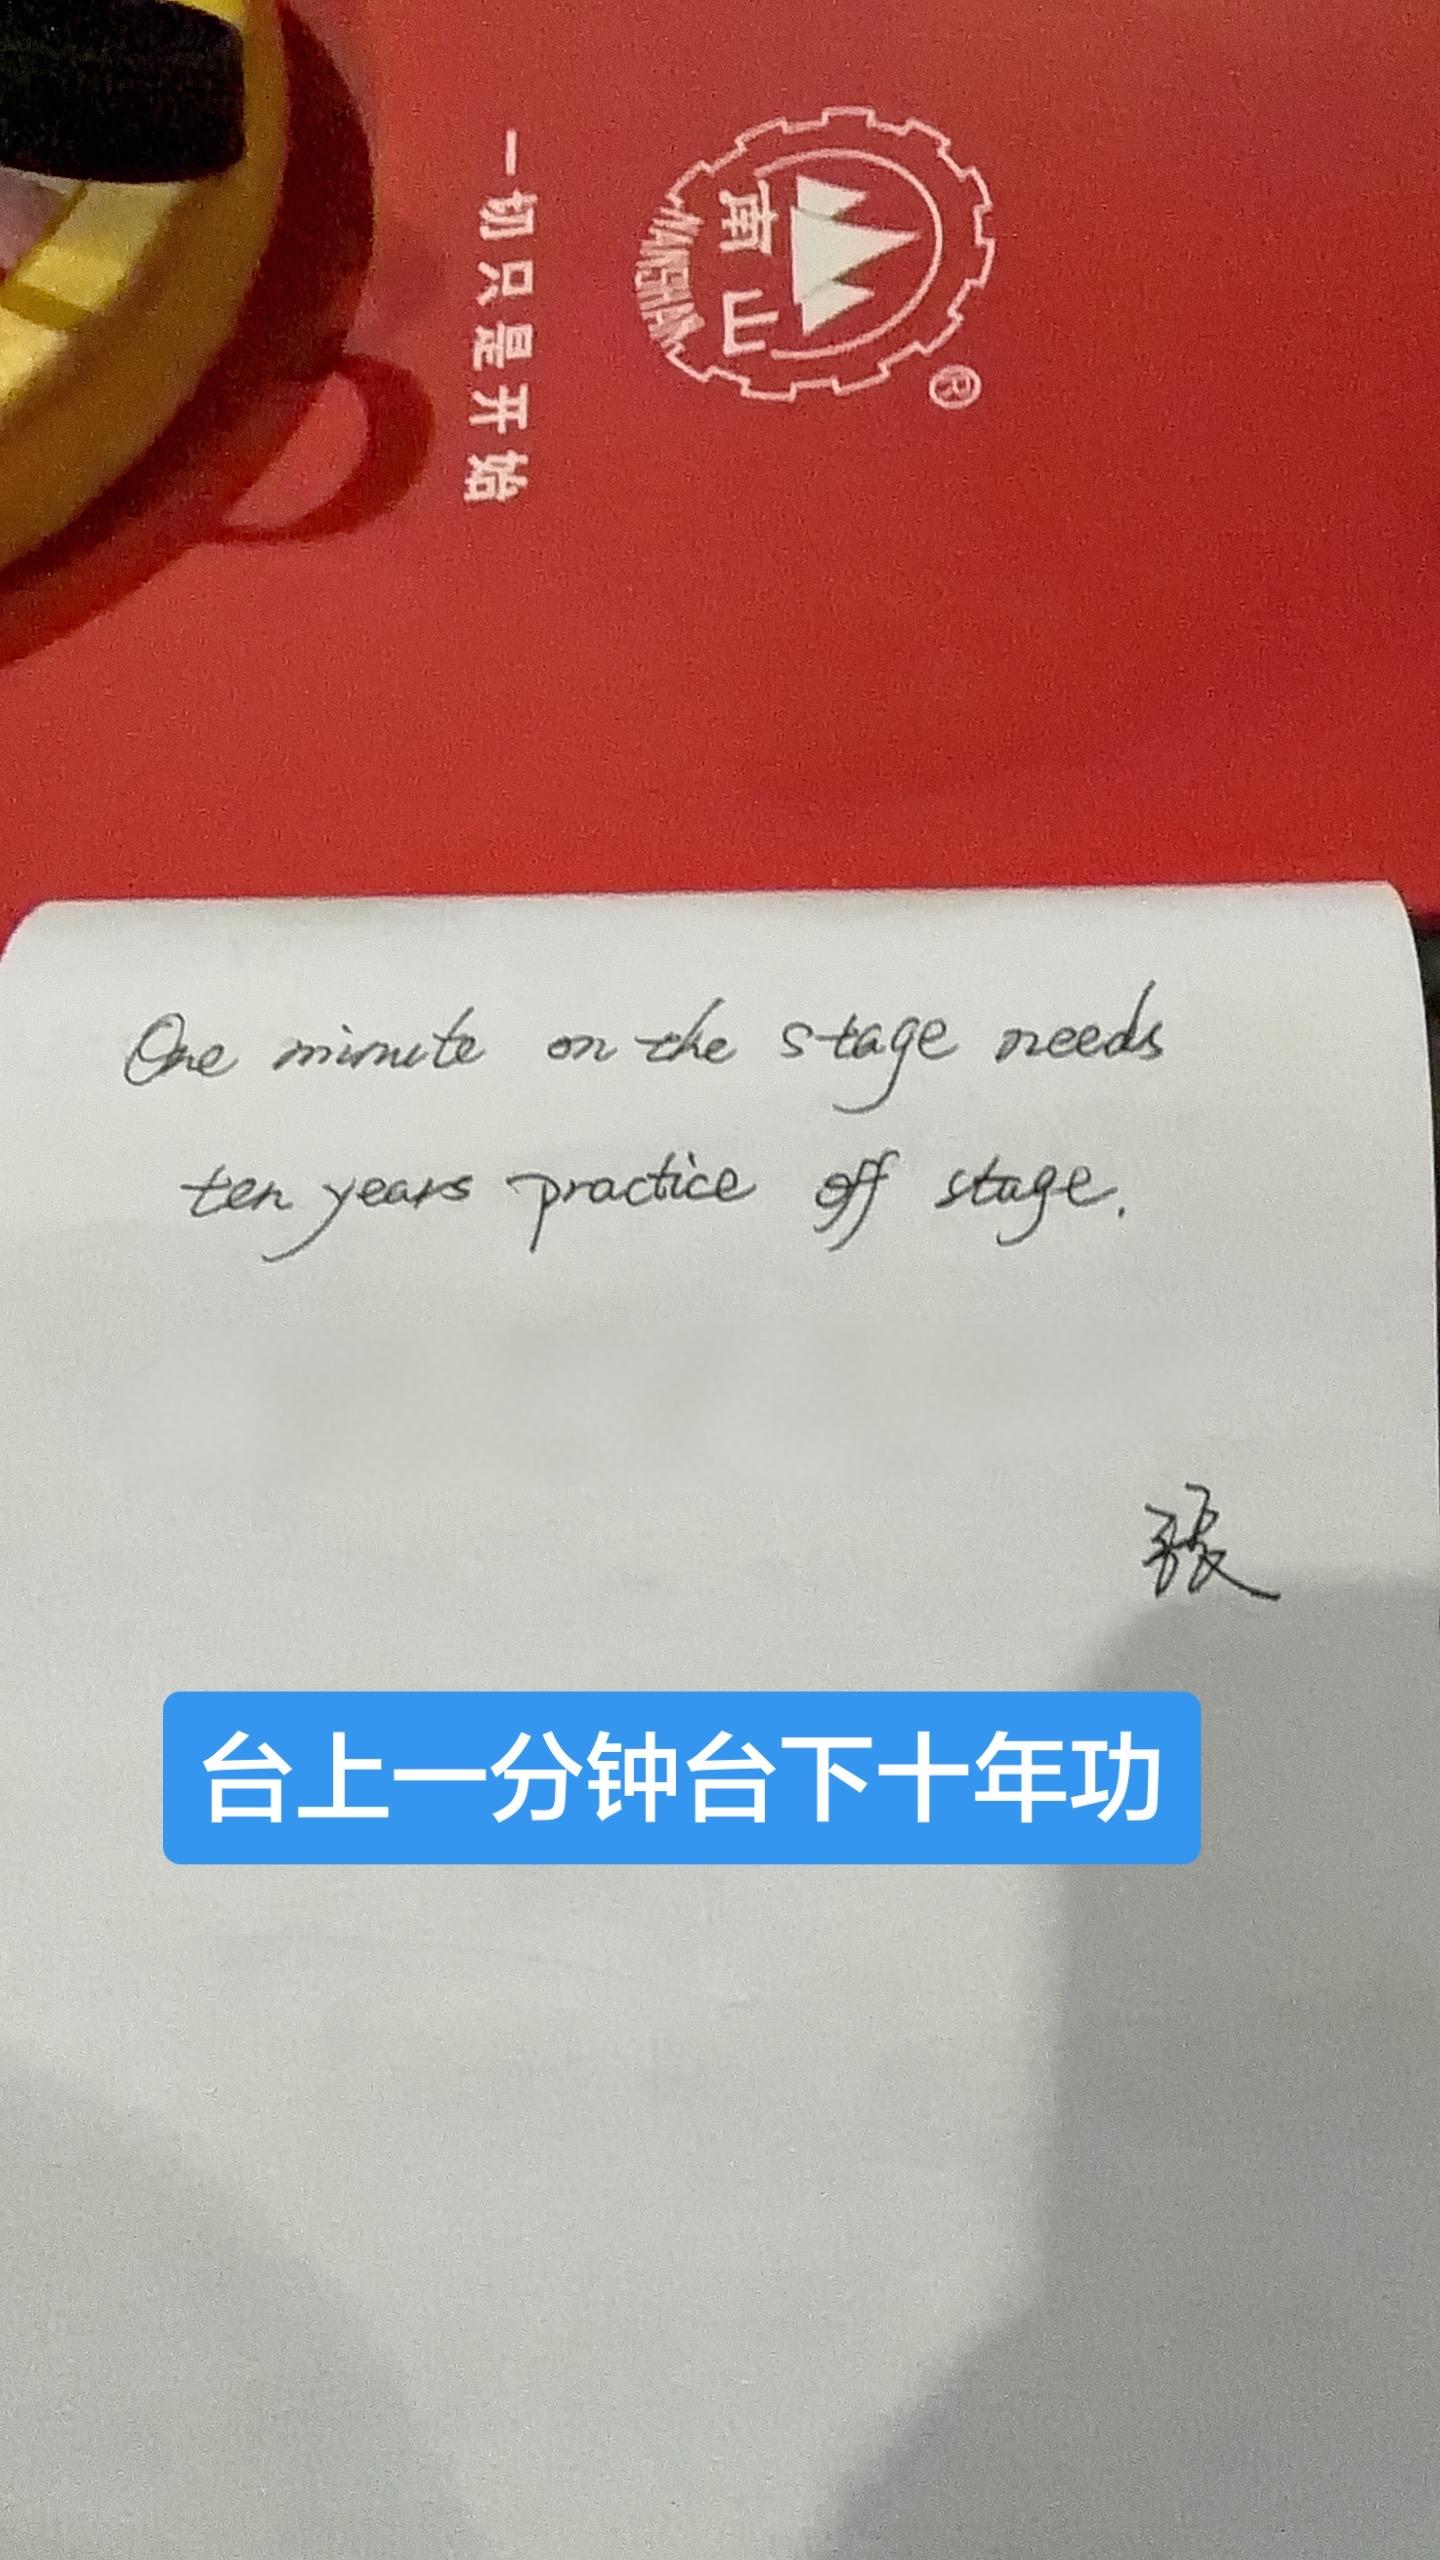 一切只是开始
南山
NANSHAN
®
One minute on the stage needs
ten years practice off stage.
张
台上一分钟台下十年功